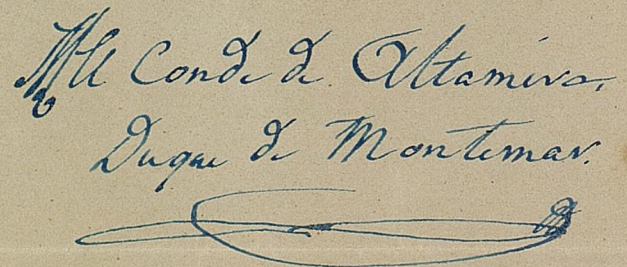 El Conde de Altamira,
Duque de Montemar.